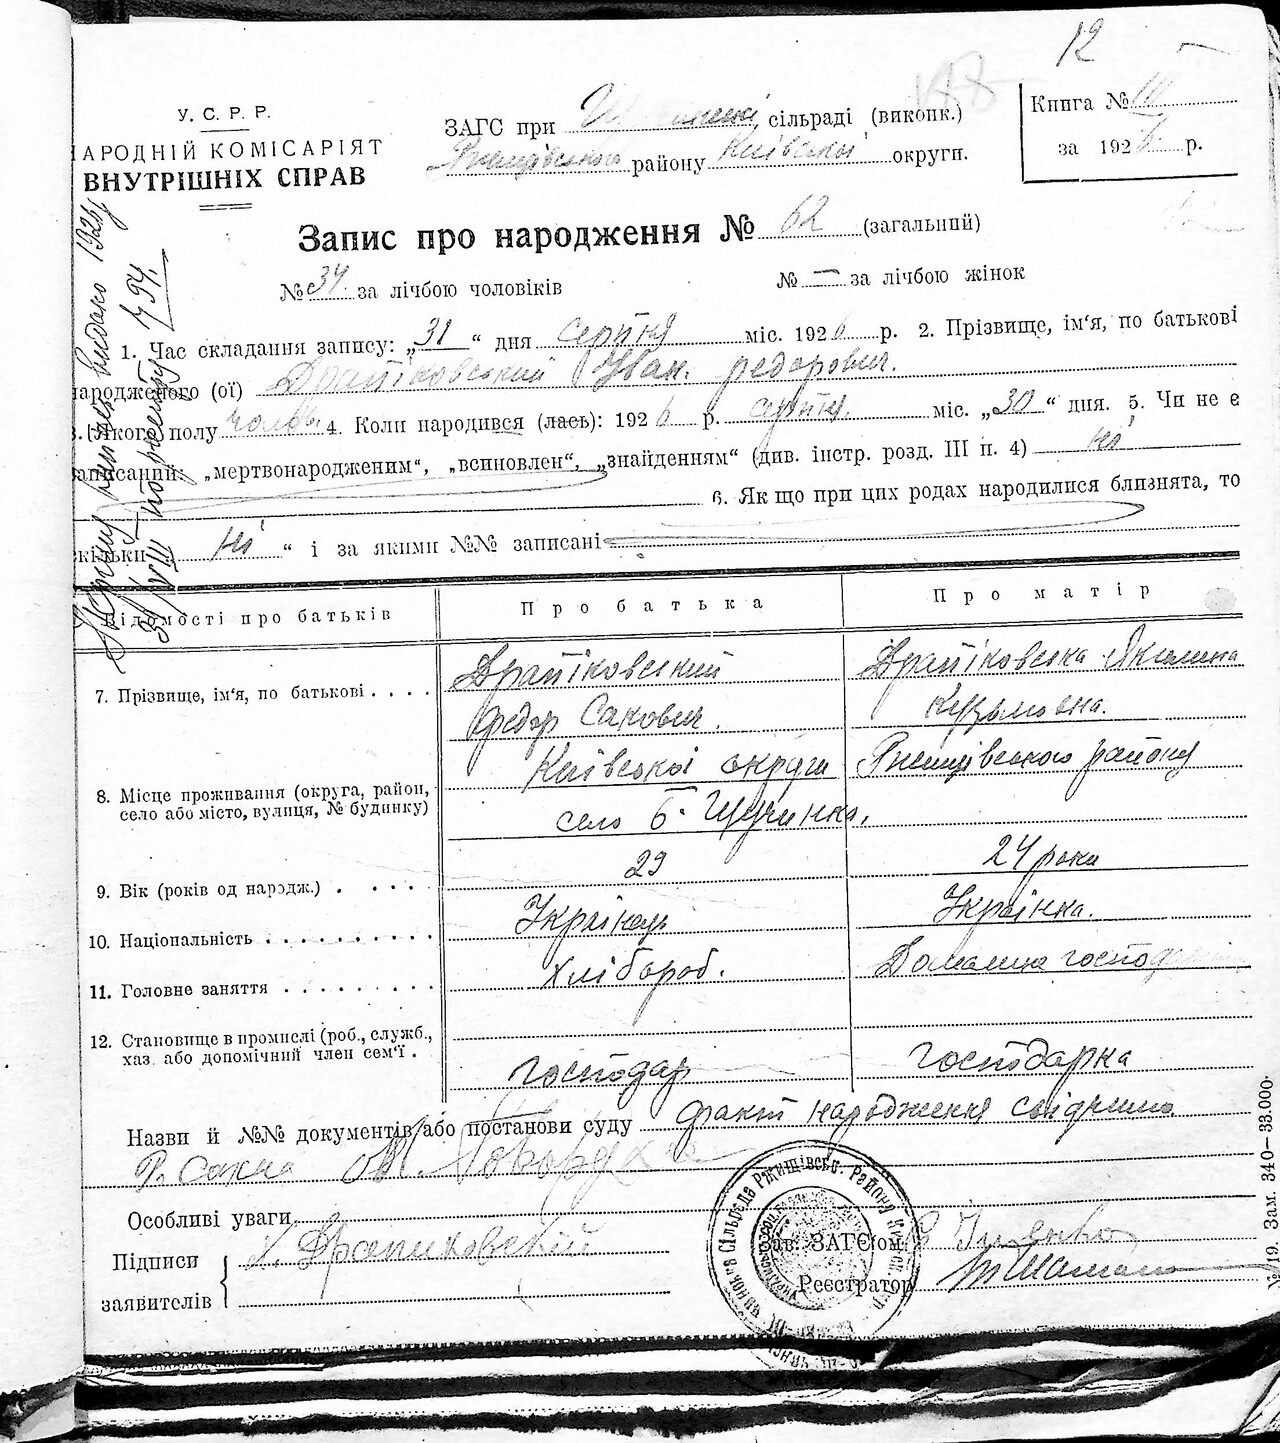 12
У. С. Р. Р.
АРОДНІЙ КОМІСАРІЯТ
ВНУТРІШНІХ СПРАВ
ЗАГС при сільраді (виконк.)
Ржищівського району Київської округи.
Книга № III
за 1926 р.
Запис про народження № 62 (загальний)
№ 34 за лічбою чоловіків № — за лічбою жінок
1. Час складання запису: „31“ дня серпня міс. 1926 р. 2. Прізвище, ім‘я, по батькові
народженого (ої) Драпіковський Іван Федорович.
3. Якого полу чолов. 4. Коли народився (лась): 1926 р. серпня міс. „30“ дня. 5. Чи не є
записаний: „мертвонародженим“, „всиновлен“, „знайденням“ (див. інстр. розд. III п. 4) ні
6. Як що при цих родах народилися близнята, то
скільки „ ні “ і за якими №№ записані
Відомості про батьків Про батька Про матір
7. Прізвище, ім‘я, по батькові . . . . Драпіковський Драпіковська Якилина
Федор Савович. Кузьмовна.
8. Місце проживання (округа, район, Київської округи Ржищівського району
село або місто, вулиця, № будинку) село Б. Щучинка,
9. Вік (років од народж.) . . . . . 29 24 роки
10. Національність . . . . . . . . . . Українець Українка.
11. Головне заняття . . . . . . . . . Хлібороб. Домашнє господ
12. Становище в промислі (роб., служб.,
хаз. або допомічний член сем‘ї . господар господарка
Назви й №№ документів або постанови суду факт народження свідчила
Особливі уваги
Підписи Драпиковский
заявителів
Зав. ЗАГС‘ом
Реєстратор
Сільрада Ржищівськ. Района
№ 19. Зам. 340–33.000.